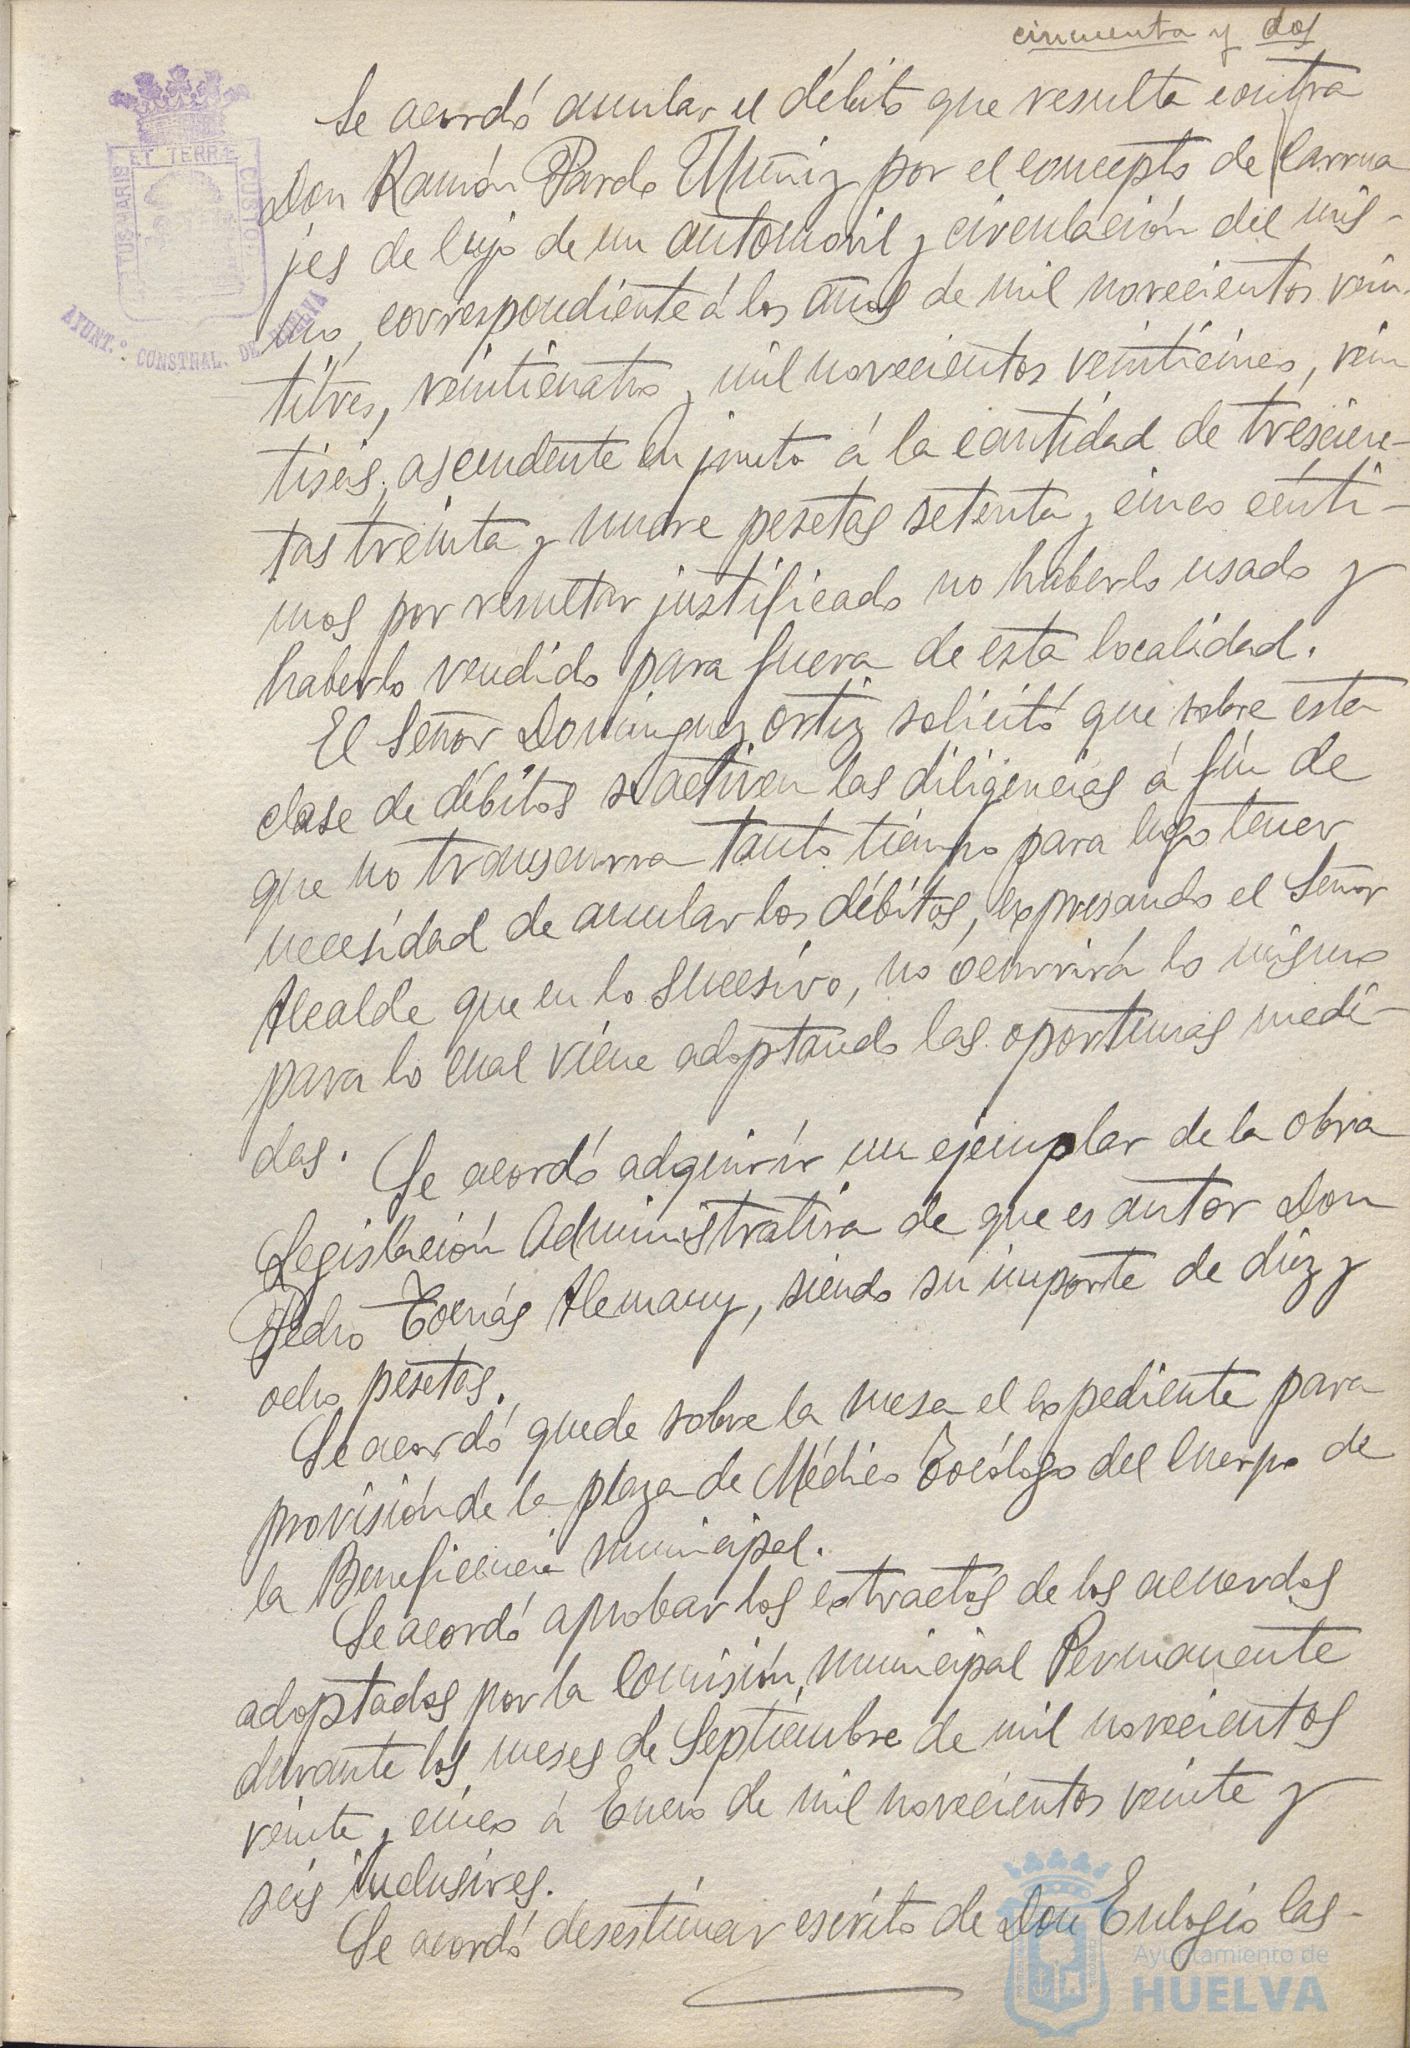 cincuenta y dos
Se acordó anular el débito que resulta contra
Don Ramón Pardo Muñiz por el concepto de Carrua
jes de lujo de un automovil y circulación del mis-
mo, correspondiente á los años de mil novecientos vein-
titres, veinticuatro y mil novecientos veinticinco, vein
tiseis, ascendente en junto á la cantidad de trescien-
tas treinta y nueve pesetas setenta y cinco cénti-
mos por resultar justificado no haberlo usado y
haberlo vendido para fuera de esta localidad.
El Señor Dominguez Ortiz solicitó que sobre esta
clase de débitos se activen las diligencias á fin de
que no transcurra tanto tiempo para luego tener
necesidad de anular los débitos, expresando el Señor
Alcalde que en lo sucesivo, no ocurrirá lo mismo
para lo cual viene adoptando las oportunas medi-
das.
Se acordó adquirir un ejemplar de la obra
Legislación Administrativa de que es autor Don
Pedro Alemany, siendo su importe de diez y
ocho pesetas.
Se acordó quede sobre la mesa el expediente para
provisión de la plaza de Médico Tocólogo del Cuerpo de
la Beneficencia municipal.
Se acordó aprobar los extractos de los acuerdos
adoptados por la Comisión municipal Permanente
durante los meses de Septiembre de mil novecientos
veinte y cinco á Enero de mil novecientos veinte y
seis inclusives.
Se acordó desestimar escrito de Don Eulogio Cas-
PORTUS MARIS ET TERRÆ CUSTODIA
AYUNT.º CONSTNAL. DE HUELVA
Ayuntamiento de
HUELVA